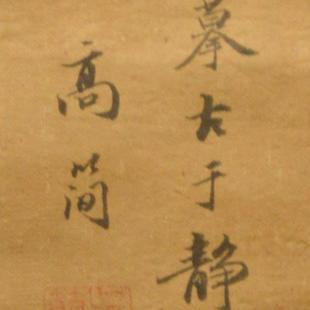 摹古于静
高简